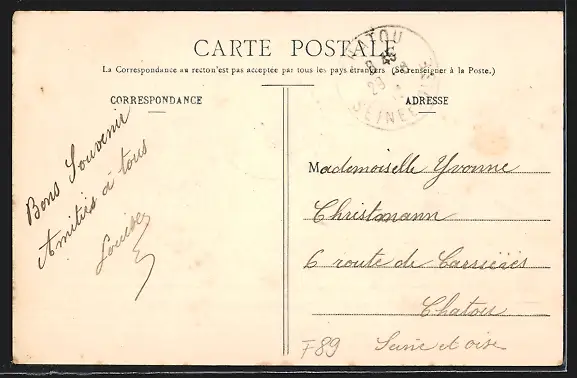 CARTE POSTALE
La Correspondance au recto n'est pas acceptée par tous les pays étrangers (Se renseigner à la Poste.)
CORRESPONDANCE
ADRESSE
Bons Souvenir
Amitiés à tous
Louise
Mademoiselle Yvonne
Christmann
6 route de Carrières
Chatou
Seine et oise
F89
CHATOU
8 45
29
SEINE